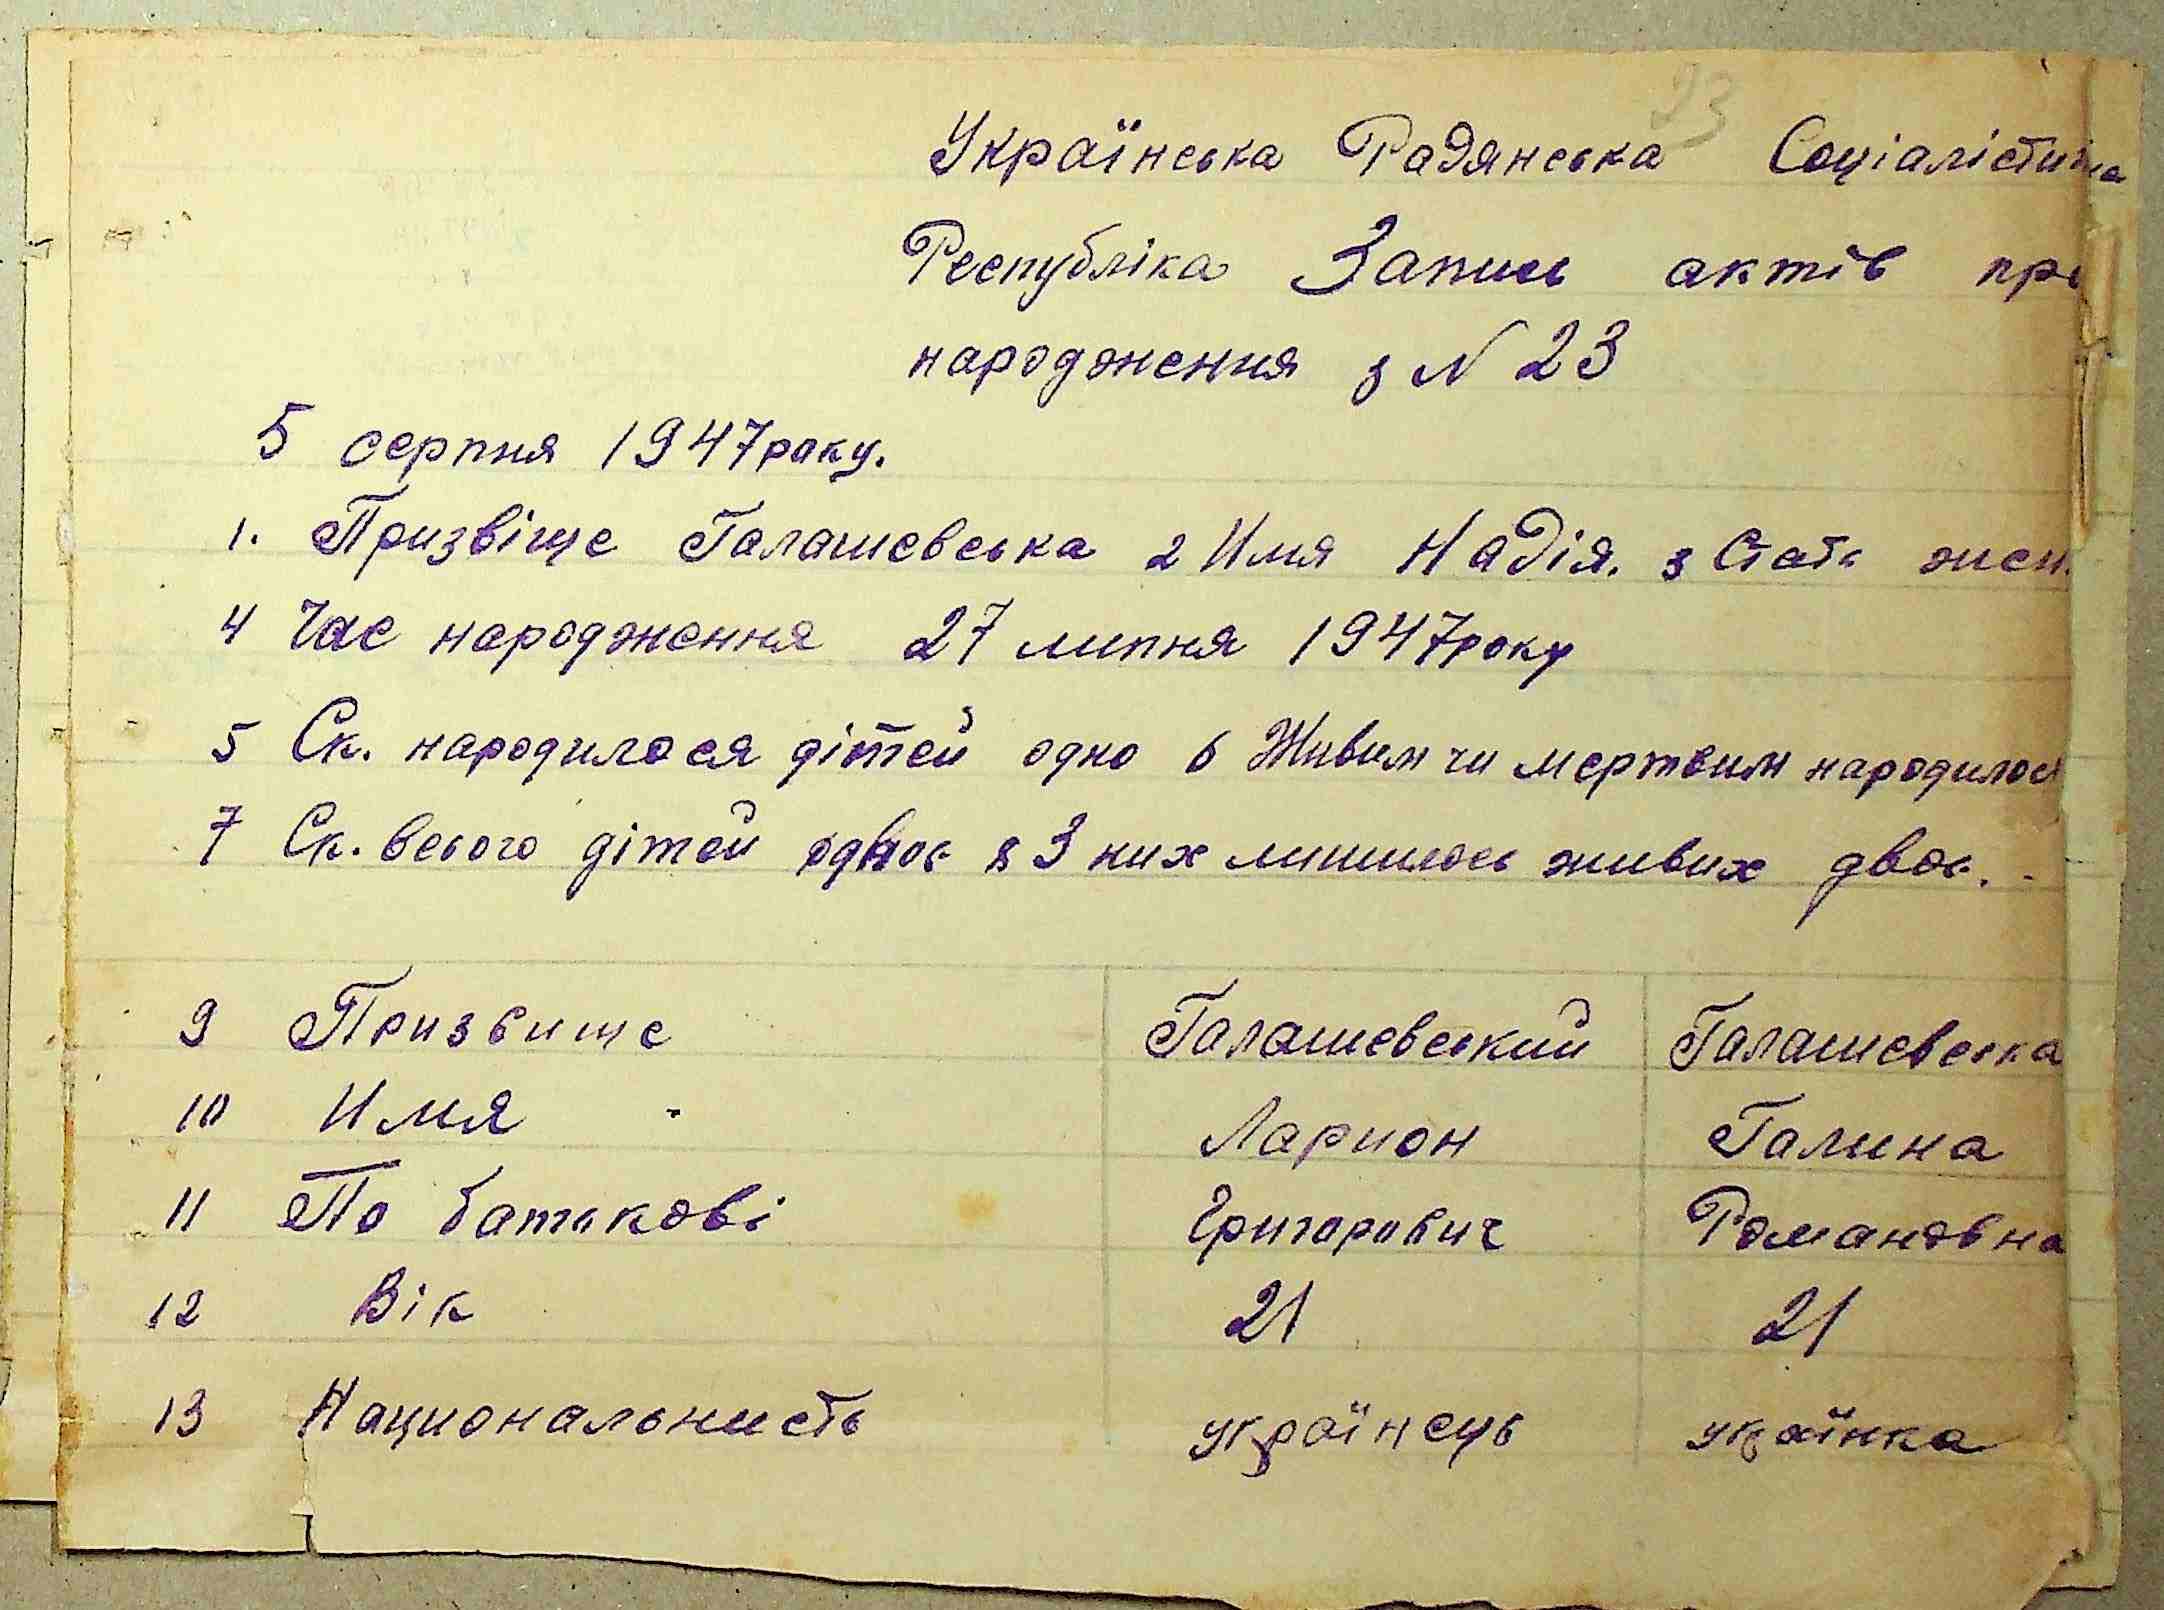 23
Українська Радянська Соціалістична
Республіка Запись актів про
народження з N 23
5 серпня 1947 року.
1. Призвіще Галашевська 2 Имя Надія. 3 Стать жен.
4 Час народження 27 липня 1947 року
5 Ск. народилося дітей одно 6 Живим чи мертвим народилося
7 Ск. всього дітей двоє 8 З них лишилось живих двоє.
9 Призвище Галашевський Галашевська
10 Имя Ларион Галина
11 По батькові Григорович Романовна
12 Вік 21 21
13 Национальність українець українка